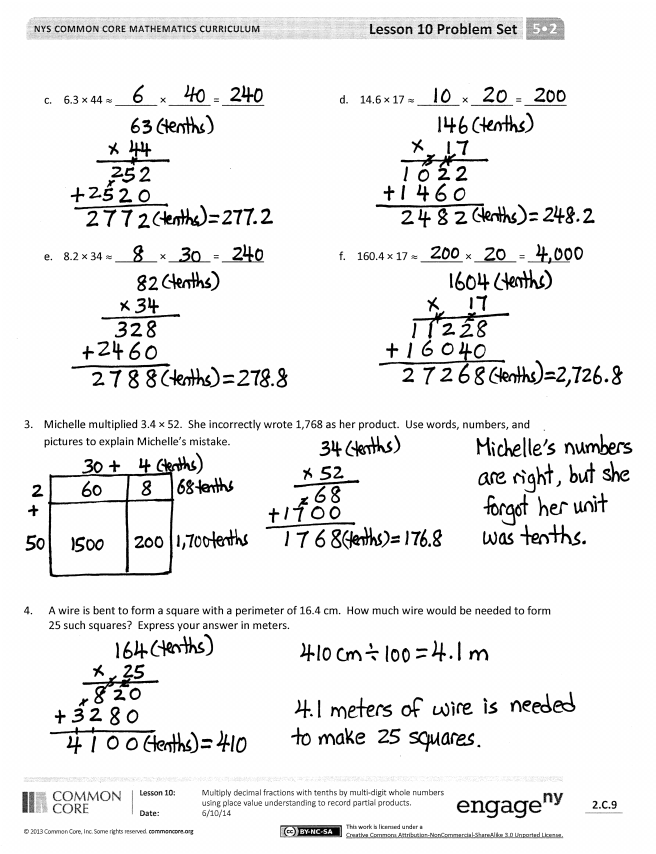 NYS COMMON CORE MATHEMATICS CURRICULUM Lesson 10 Problem Set 5•2
c. 6.3 × 44 ≈ 6 × 40 = 240
63 (tenths)
× 44
252
+2520
2772 (tenths) = 277.2
d. 14.6 × 17 ≈ 10 × 20 = 200
146 (tenths)
× 17
1022
+1460
2482 (tenths) = 248.2
e. 8.2 × 34 ≈ 8 × 30 = 240
82 (tenths)
× 34
328
+2460
2788 (tenths) = 278.8
f. 160.4 × 17 ≈ 200 × 20 = 4,000
1604 (tenths)
× 17
11228
+16040
27268 (tenths) = 2,726.8
3. Michelle multiplied 3.4 × 52. She incorrectly wrote 1,768 as her product. Use words, numbers, and
pictures to explain Michelle's mistake.
30 + 4 (tenths)
2 60 8 68 tenths
+
50 1500 200 1,700 tenths
34 (tenths)
× 52
68
+1700
1768 (tenths) = 176.8
Michelle's numbers
are right, but she
forgot her unit
was tenths.
4. A wire is bent to form a square with a perimeter of 16.4 cm. How much wire would be needed to form
25 such squares? Express your answer in meters.
164 (tenths)
× 25
820
+3280
4100 (tenths) = 410
410 cm ÷ 100 = 4.1 m
4.1 meters of wire is needed
to make 25 squares.
COMMON
CORE
Lesson 10: Multiply decimal fractions with tenths by multi-digit whole numbers
using place value understanding to record partial products.
Date: 6/10/14
engage ny
2.C.9
© 2013 Common Core, Inc. Some rights reserved. commoncore.org
(cc) BY-NC-SA
This work is licensed under a
Creative Commons Attribution-NonCommercial-ShareAlike 3.0 Unported License.